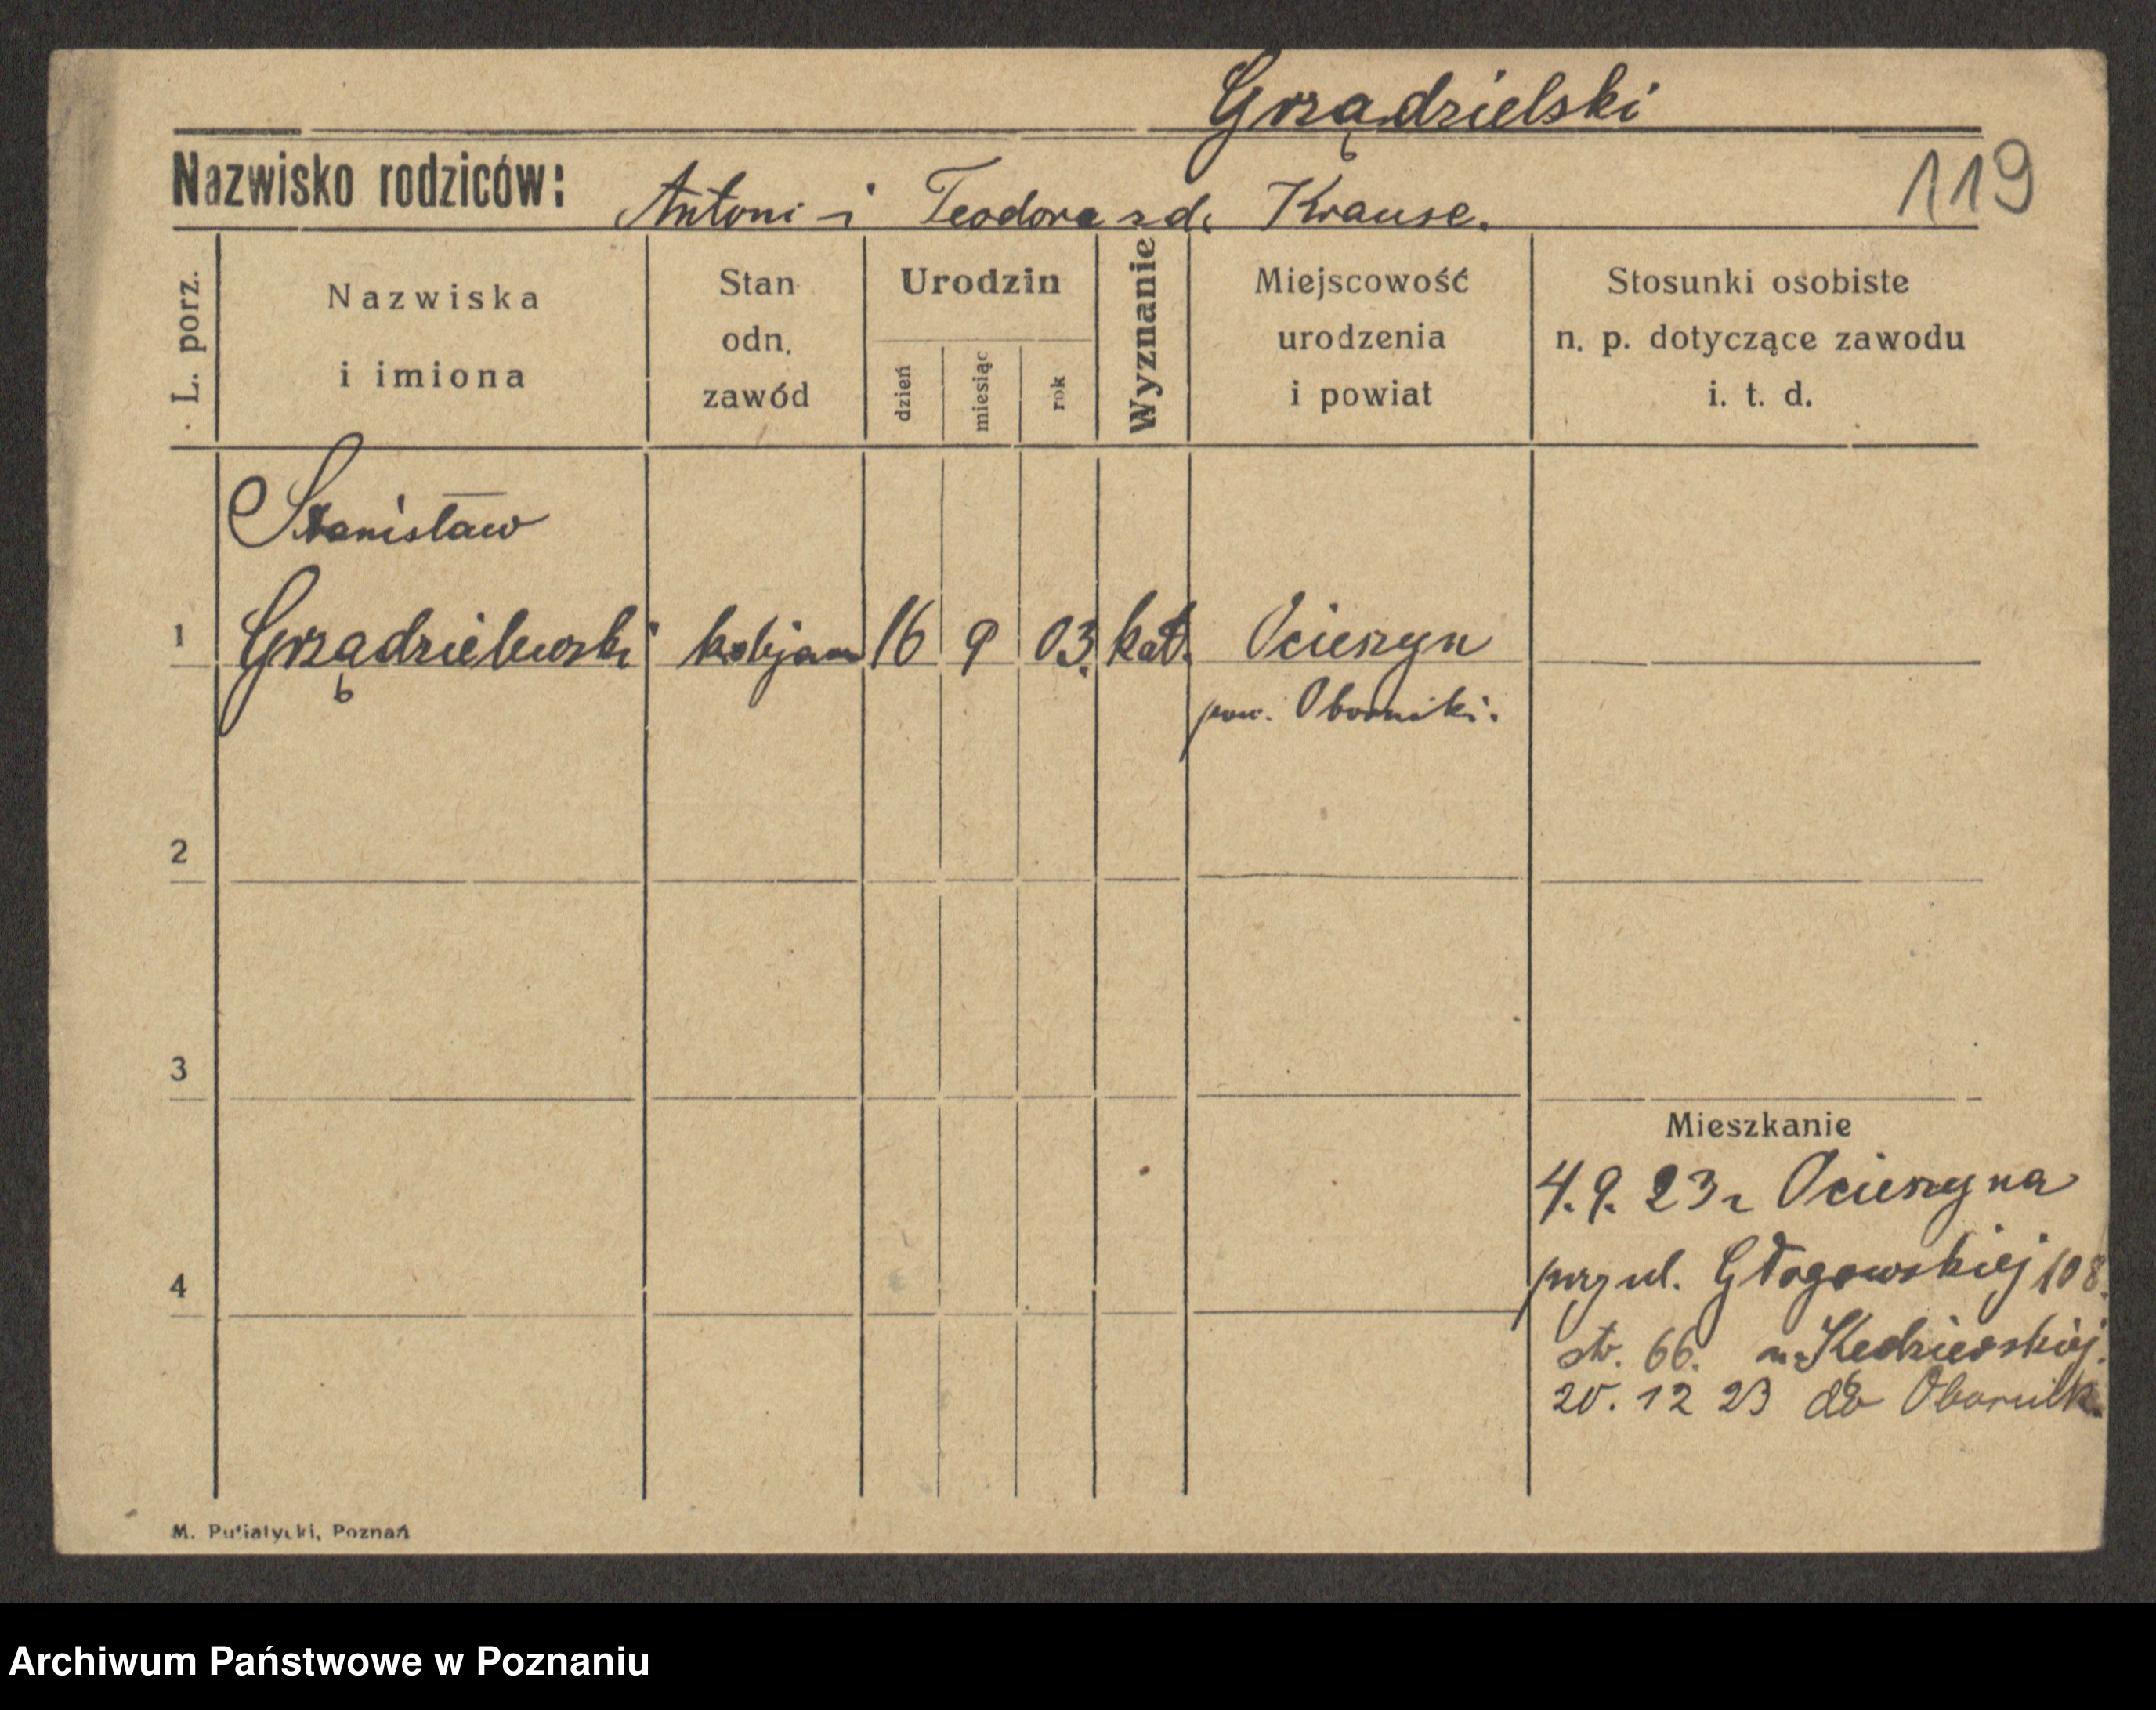 Grządzielski
119
Nazwisko rodziców: Antoni i Teodora zd. Krause.
L. porz.
Nazwiska
i imiona
Stan
odn.
zawód
Urodzin
dzień
miesiąc
rok
Wyznanie
Miejscowość
urodzenia
i powiat
Stosunki osobiste
n. p. dotyczące zawodu
i. t. d.
Stanisław
1 Grządzielewski 16 9 03. kat. Ocieszyn
pow. Oborniki.
2
3
Mieszkanie
4. 9. 23 r Ocieszyna
4
przy ul. Głogowskiej 108.
str. 66. u Kedzierskiej.
20. 12 23 do Obornik.
M. Putiatycki, Poznań
Archiwum Państwowe w Poznaniu